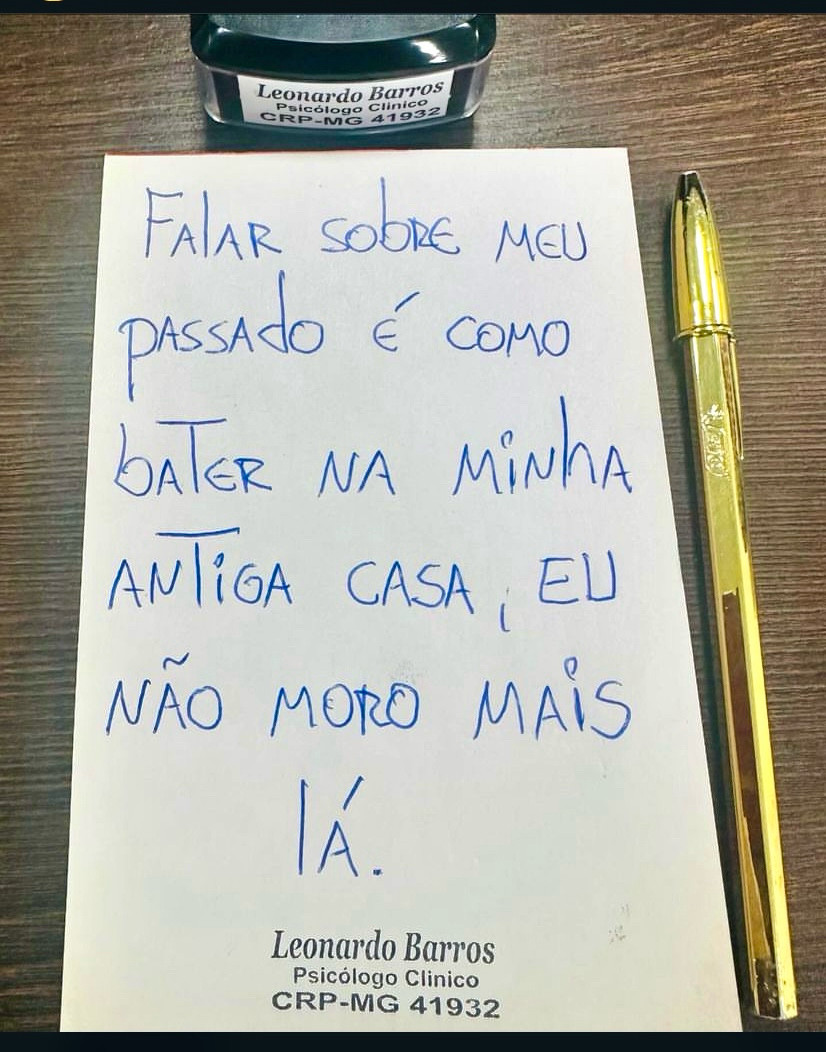 Leonardo Barros
Psicólogo Clinico
CRP-MG 41932
FAlAR SObRE MEU
PASSAdO É COMO
bATER NA MiNhA
ANTiGA CASA, EU
NÃO MORO MAiS
lÁ.
Leonardo Barros
Psicólogo Clinico
CRP-MG 41932